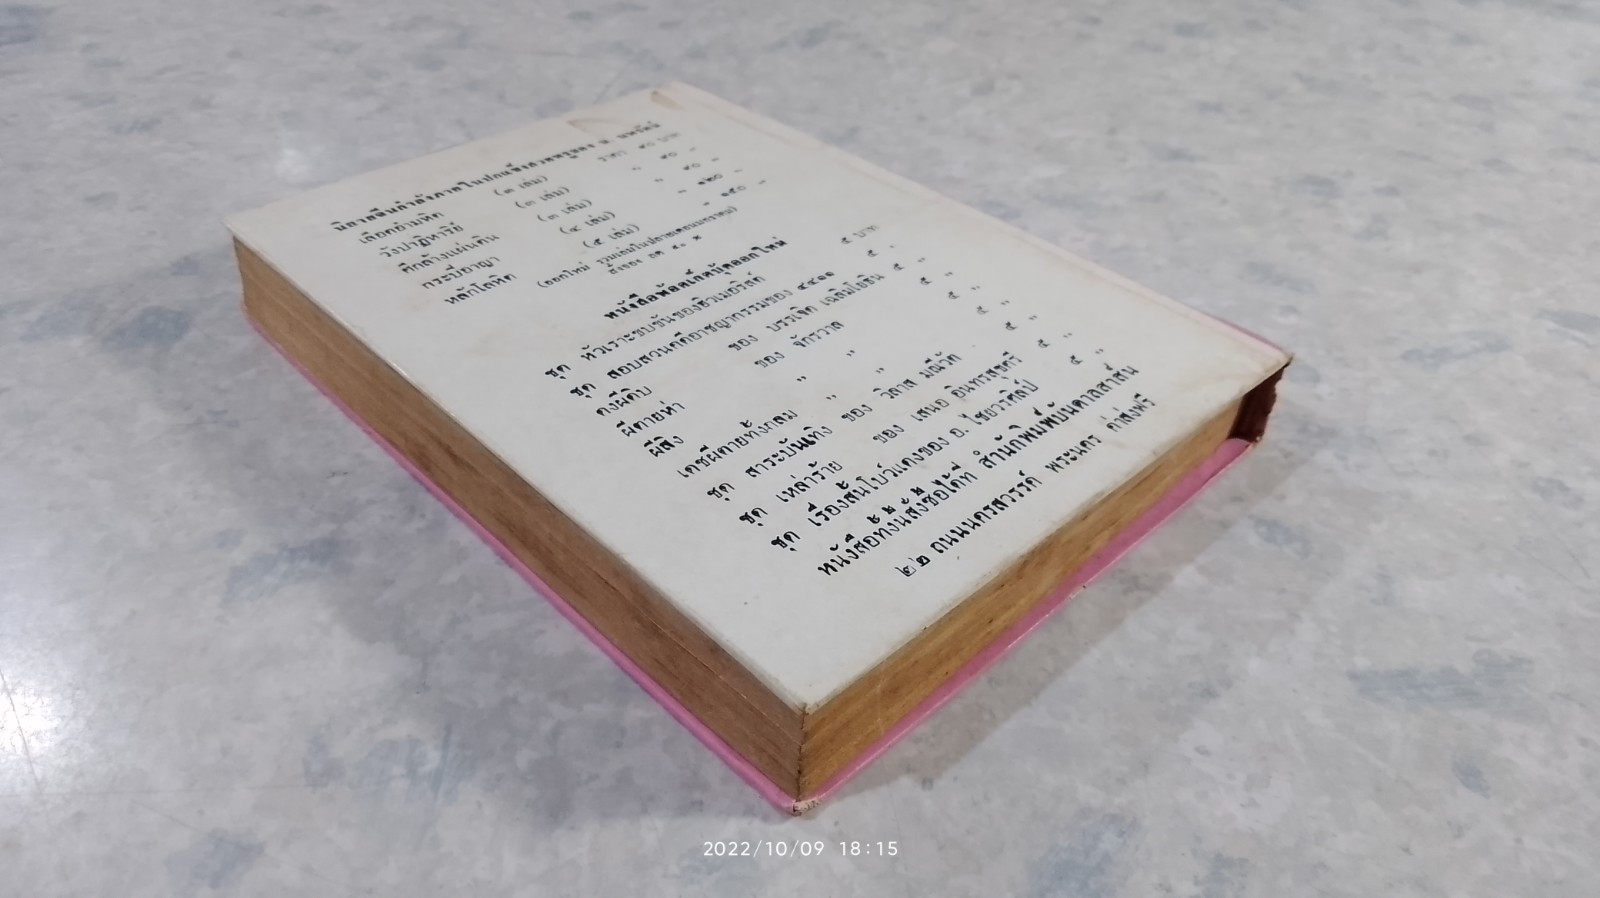 นิยายจีนกำลังภายในปกแข็งสวยหรูของ น. นพรัตน์
เลือดอำมหิต (๓ เล่ม) ราคา ๙๐ บาท
วังปาฏิหาริย์ (๓ เล่ม) " ๙๐ "
ศึกล้างแผ่นดิน (๓ เล่ม) " ๙๐ "
กระบี่อาญา (๔ เล่ม) " ๑๒๐ "
หลักโลหิต (๕ เล่ม) " ๑๕๐ "
(ออกใหม่ รวมเล่มในปลายเดือนมกราคม)
สั่งจอง ลด
หนังสือพ้อคเก็ตบุ้คออกใหม่
ชุด หัวเราะขบขันของฮิวเมอริสต์ ๕ บาท
ชุด สอบสวนคดีอาชญากรรมของ ๔๔๑๑ ๕ "
ดงผีดิบ ของ บรรเจิด เฉลิมโยธิน ๕ "
ผีตายห่า ของ จักรวาล ๕ "
ผีสิง " " ๕ "
เดชผีตายทั้งกลม " " ๕ "
ชุด สาระบันเทิง ของ วิลาส มณีวัต ๕ "
ชุด เหล่าร้าย ของ เสนอ อินทรสุขศรี ๕ "
ชุด เรื่องสั้นโบว์แดงของ อ. ไชยวรศิลป์ ๕ "
หนังสือทั้งนี้สั่งซื้อได้ที่ สำนักพิมพ์บันดาลสาส์น
๒๒ ถนนนครสวรรค์ พระนคร ค่าส่งฟรี
2022/10/09 18:15